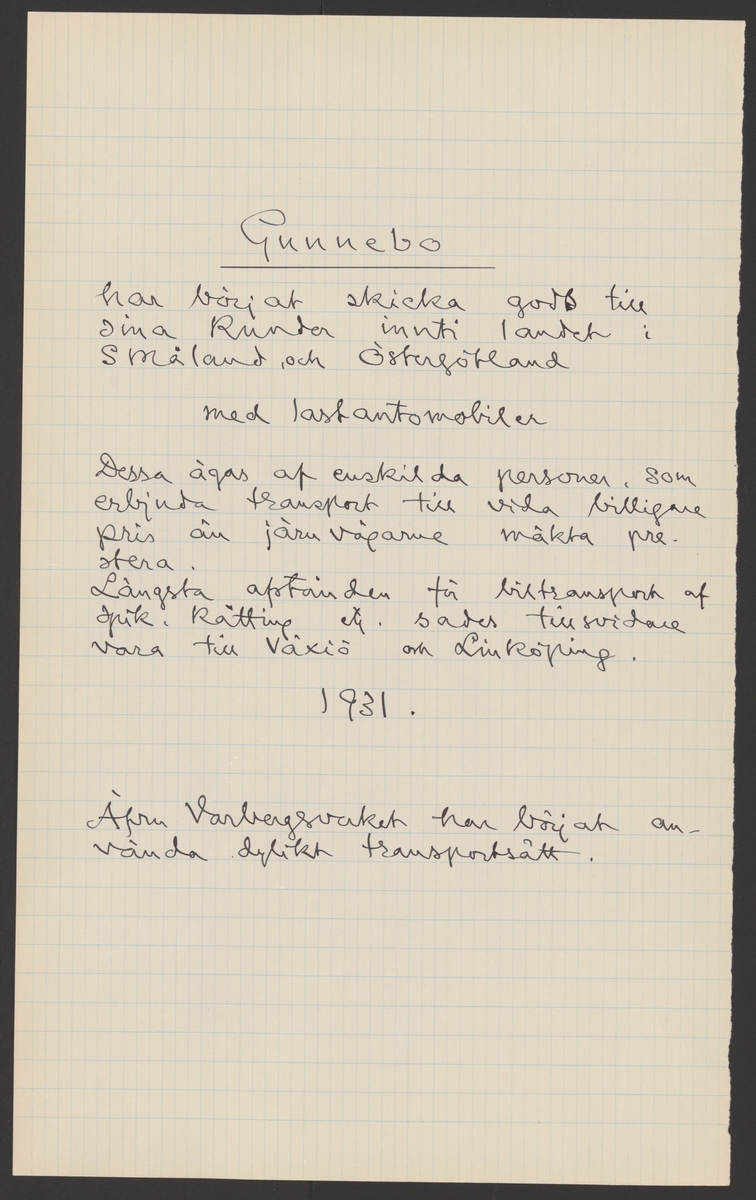 Gunnebo
har börjat skicka gods till
sina kunder innti landet i
Småland, och Östergötland
med lastautomobiler
Dessa ägas af enskilda personer, som
erbjuda transport till vida billigare
pris än järnvägarne mäkta pre-
stera.
Längsta afstånden för biltransport af
spik, kätting etc. sades tillsvidare
vara till Växiö och Linköping.
1931.
Äfven Varbergsverket har börjat an-
vända dylikt transportsätt.